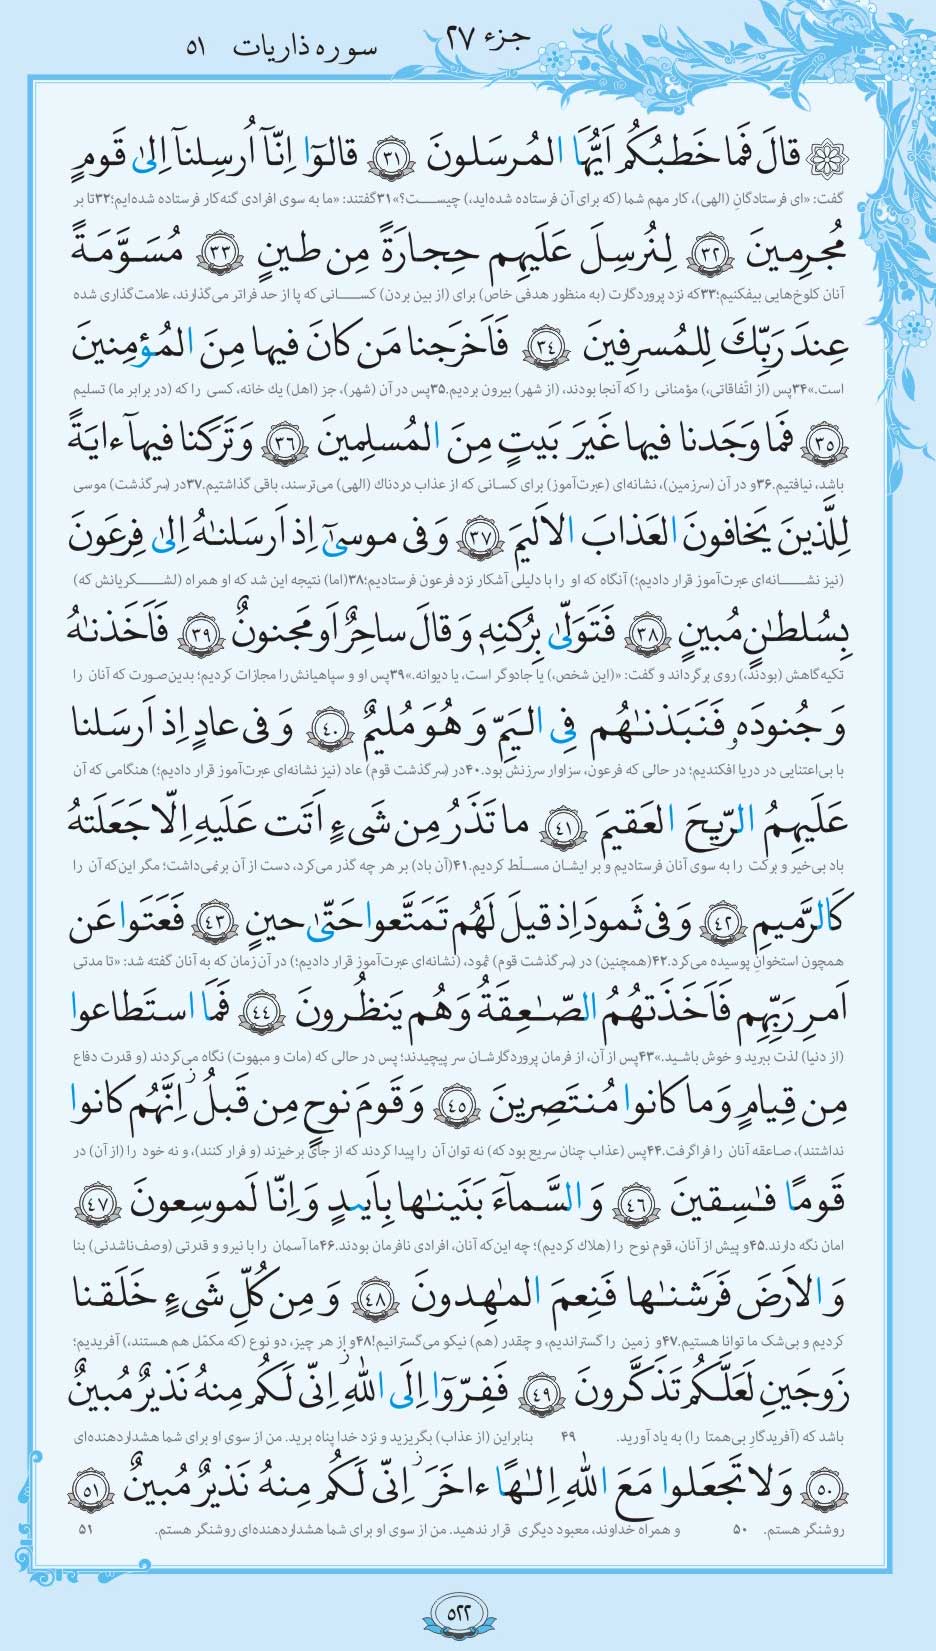 جزء ۲۷ سوره ذاریات ۵۱
قالَ فَما خَطبُكُم اَيُّهَا المُرسَلونَ ﴿٣١﴾ قالوٓا اِنّآ اُرسِلنآ اِلىٰ قَومٍ
گفت: «ای فرستادگانِ (الهی)، کار مهم شما (که برای آن فرستاده شده‌اید،) چیست؟»۳۱گفتند: «ما به سوی افرادی گنه‌کار فرستاده شده‌ایم؛۳۲تا بر
مُجرِمينَ ﴿٣٢﴾ لِنُرسِلَ عَلَيهِم حِجارَةً مِن طينٍ ﴿٣٣﴾ مُسَوَّمَةً
آنان کلوخ‌هایی بیفکنیم؛۳۳که نزد پروردگارت (به منظور هدفی خاص) برای (از بین بردن) کسانی که پا از حد فراتر می‌گذارند، علامت‌گذاری شده
عِندَ رَبِّكَ لِلمُسرِفينَ ﴿٣٤﴾ فَاَخرَجنا مَن كانَ فيها مِنَ المُؤمِنينَ
است.»۳۴پس (از اتّفاقاتی،) مؤمنانی را که آنجا بودند، (از شهر) بیرون بردیم.۳۵پس در آن (شهر)، جز (اهل) یك خانه، کسی را که (در برابر ما) تسلیم
﴿٣٥﴾ فَما وَجَدنا فيها غَيرَ بَيتٍ مِنَ المُسلِمينَ ﴿٣٦﴾ وَ تَرَكنا فيهآ ءايَةً
باشد، نیافتیم.۳۶و در آن (سرزمین)، نشانه‌ای (عبرت‌آموز) برای کسانی که از عذاب دردناك (الهی) می‌ترسند، باقی گذاشتیم.۳۷در (سرگذشت) موسی
لِلَّذينَ يَخافونَ العَذابَ الاَليمَ ﴿٣٧﴾ وَ فى موسىٰٓ اِذ اَرسَلنٰهُ اِلىٰ فِرعَونَ
(نیز نشانه‌ای عبرت‌آموز قرار دادیم؛) آنگاه که او را با دلیلی آشکار نزد فرعون فرستادیم؛۳۸(اما) نتیجه این شد که او همراه (لشکریانش که)
بِسُلطٰنٍ مُبينٍ ﴿٣٨﴾ فَتَوَلّىٰ بِرُكنِهٖ وَ قالَ ساحِرٌ اَو مَجنونٌ ﴿٣٩﴾ فَاَخَذنٰهُ
تکیه‌گاهش (بودند،) روی برگرداند و گفت: «(این شخص،) یا جادوگر است، یا دیوانه.»۳۹پس او و سپاهیانش را مجازات کردیم؛ بدین‌صورت که آنان را
وَ جُنودَهٗ فَنَبَذنٰهُم فِى اليَمِّ وَ هُوَ مُليمٌ ﴿٤٠﴾ وَ فى عادٍ اِذ اَرسَلنا
با بی‌اعتنایی در دریا افکندیم؛ در حالی که فرعون، سزاوار سرزنش بود.۴۰در (سرگذشت قوم) عاد (نیز نشانه‌ای عبرت‌آموز قرار دادیم؛) هنگامی که آن
عَلَيهِمُ الرّيحَ العَقيمَ ﴿٤١﴾ ما تَذَرُ مِن شَىءٍ اَتَت عَلَيهِ اِلّا جَعَلَتهُ
باد بی‌خیر و برکت را به سوی آنان فرستادیم و بر ایشان مسلّط کردیم.۴۱(آن باد) بر هر چه گذر می‌کرد، دست از آن برنمی‌داشت؛ مگر این‌که آن را
كَالرَّميمِ ﴿٤٢﴾ وَ فى ثَمودَ اِذ قيلَ لَهُم تَمَتَّعوا حَتّىٰ حينٍ ﴿٤٣﴾ فَعَتَوا عَن
همچون استخوانِ پوسیده می‌کرد.۴۲(همچنین) در (سرگذشت قوم) ثمود، (نشانه‌ای عبرت‌آموز قرار دادیم؛) در آن زمان که به آنان گفته شد: «تا مدتی
اَمرِ رَبِّهِم فَاَخَذَتهُمُ الصّٰعِقَةُ وَ هُم يَنظُرونَ ﴿٤٤﴾ فَمَا استَطاعوا
(از دنیا) لذت ببرید و خوش باشید.»۴۳پس از آن، از فرمان پروردگارشان سر پیچیدند؛ پس در حالی که (مات و مبهوت) نگاه می‌کردند (و قدرت دفاع
مِن قِيامٍ وَ ما كانوا مُنتَصِرينَ ﴿٤٥﴾ وَ قَومَ نوحٍ مِن قَبلُ ۖ اِنَّهُم كانوا
نداشتند)، صاعقه آنان را فراگرفت.۴۴پس (عذاب چنان سریع بود که) نه توان آن را پیدا کردند که از جای برخیزند (و فرار کنند)، و نه خود را (از آن) در
قَومًا فٰسِقينَ ﴿٤٦﴾ وَ السَّمآءَ بَنَينٰها بِاَييدٍ وَ اِنّا لَموسِعونَ ﴿٤٧﴾
امان نگه دارند.۴۵و پیش از آنان، قوم نوح را (هلاك کردیم)؛ چه این‌که آنان، افرادی نافرمان بودند.۴۶ما آسمان را با نیرو و قدرتی (وصف‌ناشدنی) بنا
وَ الاَرضَ فَرَشنٰها فَنِعمَ المٰهِدونَ ﴿٤٨﴾ وَ مِن كُلِّ شَىءٍ خَلَقنا
کردیم و بی‌شک ما توانا هستیم.۴۷و زمین را گستراندیم، و چقدر (هم) نیکو می‌گسترانیم!۴۸و از هر چیز، دو نوع (که مکمّل هم هستند،) آفریدیم؛
زَوجَينِ لَعَلَّكُم تَذَكَّرونَ ﴿٤٩﴾ فَفِرّوٓا اِلَى اللّٰهِ ۖ اِنّى لَكُم مِنهُ نَذيرٌ مُبينٌ
باشد که (آفریدگارِ بی‌همتا را) به یاد آورید. ۴۹ بنابراین (از عذاب) بگریزید و نزد خدا پناه برید. من از سوی او برای شما هشداردهنده‌ای
﴿٥٠﴾ وَ لا تَجعَلوا مَعَ اللّٰهِ اِلٰهًا ءاخَرَ ۖ اِنّى لَكُم مِنهُ نَذيرٌ مُبينٌ ﴿٥١﴾
روشنگر هستم. ۵۰ و همراه خداوند، معبود دیگری قرار ندهید. من از سوی او برای شما هشداردهنده‌ای روشنگر هستم. ۵۱
۵۲۲